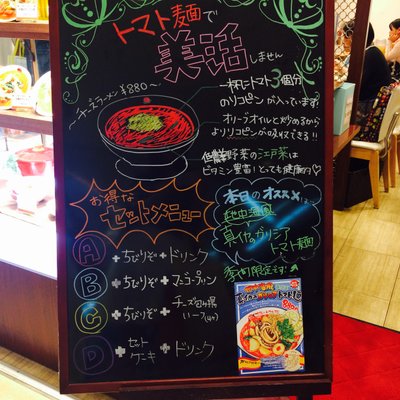 トマト麺で
美活しません
～チーズラーメン ¥880～
一杯にトマト3個分
のリコピンが入っています
オリーブオイルと炒めるから
よりリコピンが吸収できる!!
伝統野菜の江戸菜は
ビタミン豊富!とても健康的♡
お得な
セットメニュー
本日のオススメ
地中海風
真イカのガリシア
トマト麺
季節限定です
A + ちびりぞ + ドリンク
B + ちびりぞ +
C + ちびりぞ +
ハーフ
D + セット
ケーキ + ドリンク